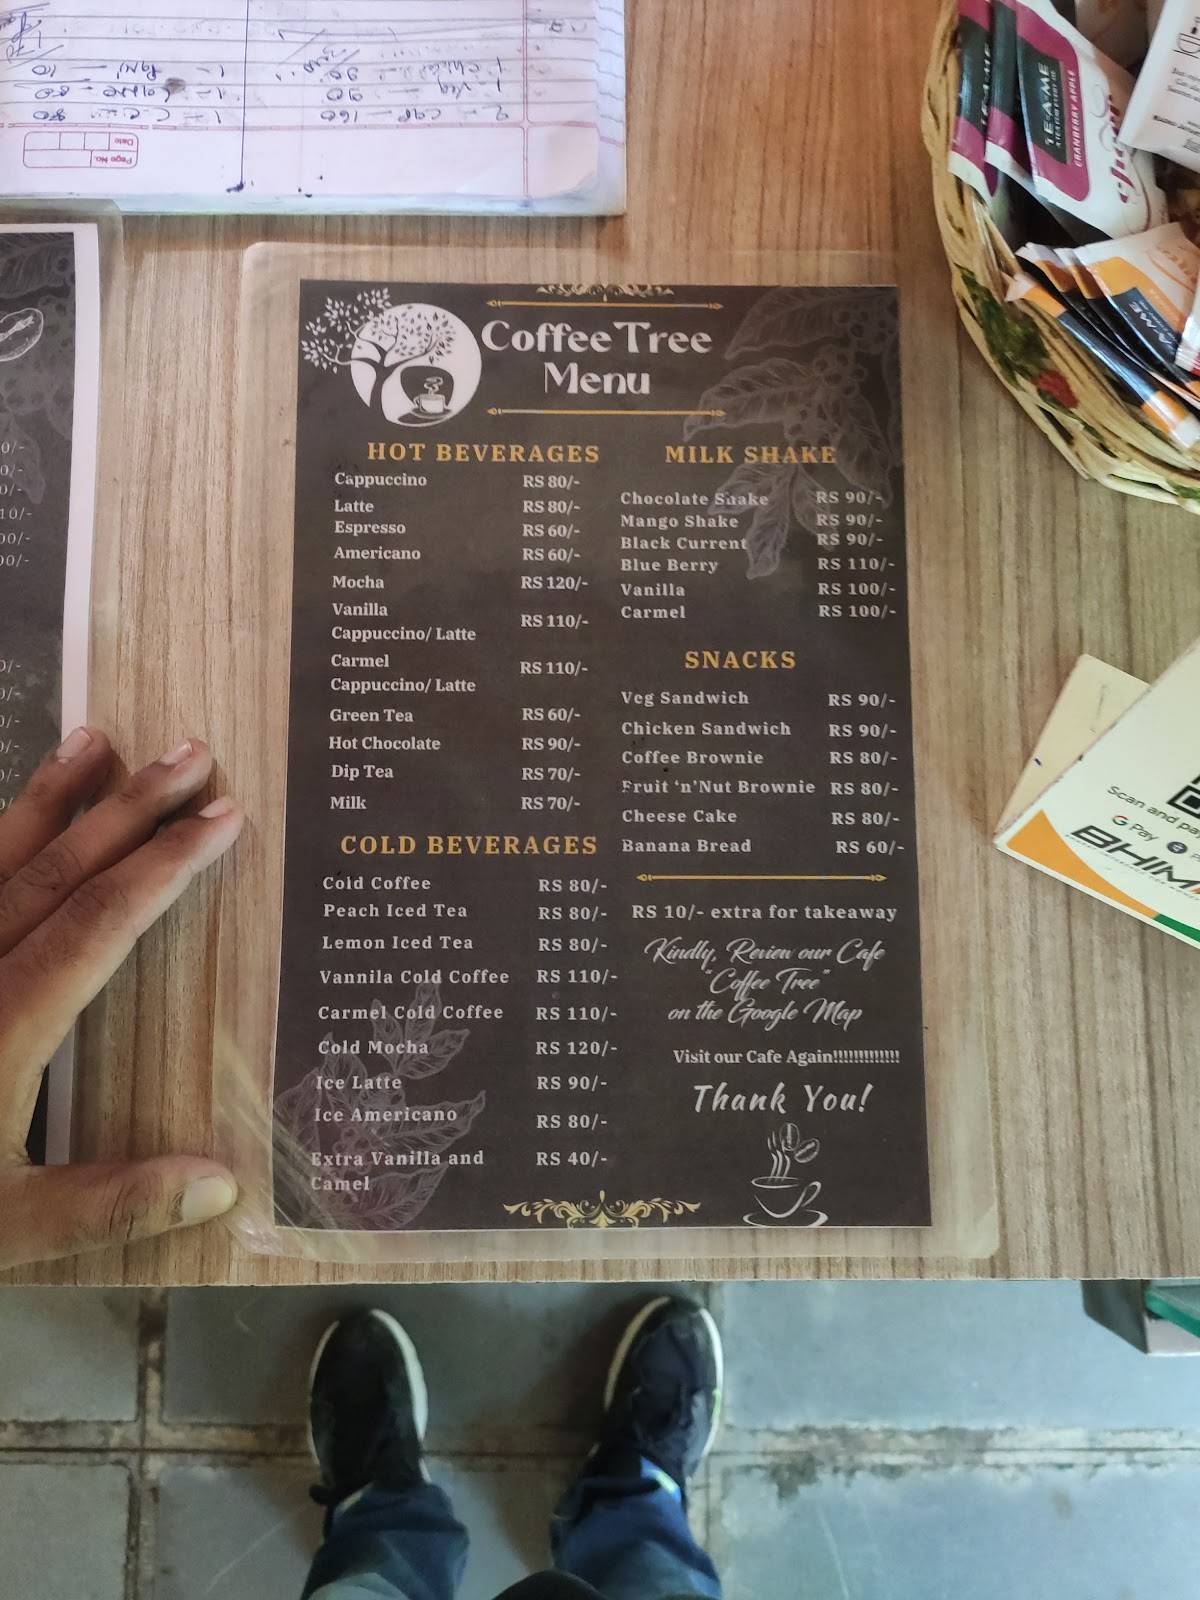 Coffee Tree
Menu
HOT BEVERAGES
Cappuccino RS 80/-
Latte RS 80/-
Espresso RS 60/-
Americano RS 60/-
Mocha RS 120/-
Vanilla
Cappuccino/ Latte RS 110/-
Carmel
Cappuccino/ Latte RS 110/-
Green Tea RS 60/-
Hot Chocolate RS 90/-
Dip Tea RS 70/-
Milk RS 70/-
COLD BEVERAGES
Cold Coffee RS 80/-
Peach Iced Tea RS 80/-
Lemon Iced Tea RS 80/-
Vannila Cold Coffee RS 110/-
Carmel Cold Coffee RS 110/-
Cold Mocha RS 120/-
Ice Latte RS 90/-
Ice Americano RS 80/-
Extra Vanilla and RS 40/-
Camel
MILK SHAKE
Chocolate Shake RS 90/-
Mango Shake RS 90/-
Black Current RS 90/-
Blue Berry RS 110/-
Vanilla RS 100/-
Carmel RS 100/-
SNACKS
Veg Sandwich RS 90/-
Chicken Sandwich RS 90/-
Coffee Brownie RS 80/-
Fruit 'n'Nut Brownie RS 80/-
Cheese Cake RS 80/-
Banana Bread RS 60/-
RS 10/- extra for takeaway
Kindly, Review our Cafe
"Coffee Tree"
on the Google Map
Visit our Cafe Again!!!!!!!!!!!!!
Thank You!
Page No.
Date
2 - cap - 160
1 - Veg - 90
TE-A-ME
CRANBERRY APPLE
Scan and pa
G Pay
BHIM